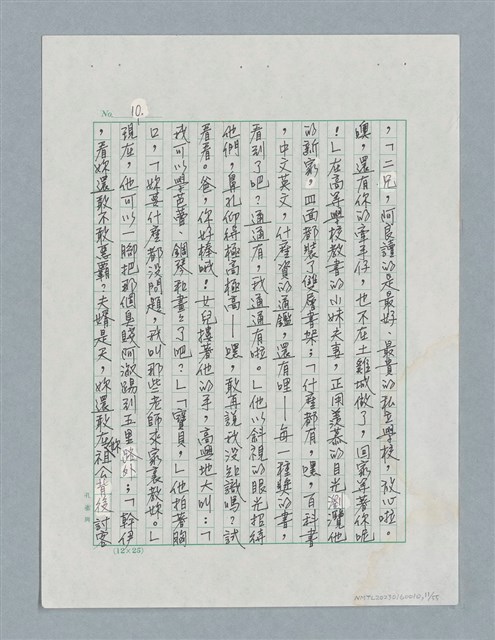 No. 10.
，「二兄，阿良讀的是最好、最貴的私立學校，放心啦。
噢，還有你的牽手仔，也不在土雞城做了，回家等著你呢
！」在高等學校教書的小妹夫妻，正用羨慕的目光瀏灠他
的新窩，四面都裝了雙層書架：「什麼都有，嘿，百科書
，中文英文，什麼資的通鑑，還有哩——每一種獎的書，
看到了吧？通通有，我通通有啦。」他以斜視的眼光招待
他們，鼻孔仰得極高極高——嘿，敢再說我沒知識嗎？試
看看。爸，你好棒哦！女兒摟著他的手，高興地大叫：「
我可以學芭蕾、鋼琴和畫畫了吧？」「寶貝，」他拍著胸
口，「妳要什麼都沒問題，我叫那些老師來家裏教妳。」
現在，他可以一腳把那個臭賤阿淑踢到五里路外：「幹伊
，看妳還敢不敢惡霸？夫婿是天，妳還敢在你祖公背後討客
(12×25)
NMTL20230160010, 11/25